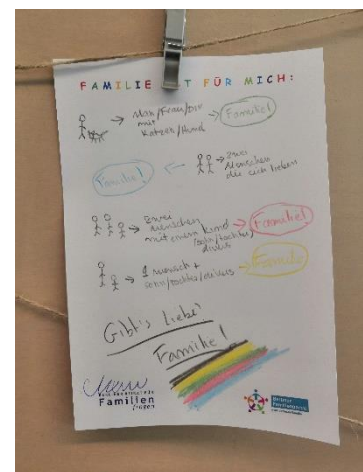 FAMILIE IST FÜR MICH:
Man/Frau/Div
mit
Katzen/Hund
Familie!
zwei
Menschen
die sich lieben
Familie!
zwei
menschen
mit einem kind
(sohn/tochter/
divers
Familie!
1 mensch +
sohn/tochter/divers
Familie
Gibt's Liebe?
Familie!
Familien
fragen